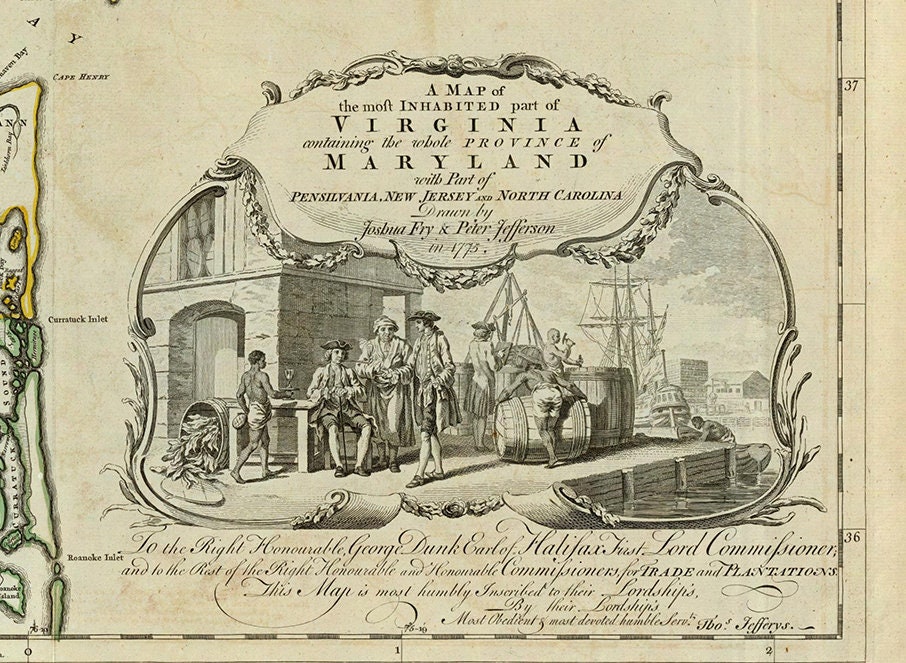 A Y
haven Bay
CAPE HENRY
ANN
37
A MAP of
the most INHABITED part of
VIRGINIA
containing the whole PROVINCE of
MARYLAND
with Part of
PENSILVANIA, NEW JERSEY AND NORTH CAROLINA
Drawn by
Joshua Fry & Peter Jefferson
in 1775.
Curratuck Inlet
SOUND
CURRATUCK
Roanoke Inlet
Roanoke
Island
36
To the Right Honourable, George Dunk Earl of Halifax First Lord Commissioner,
and to the Rest of the Right Honourable and Honourable Commissioners, for TRADE and PLANTATIONS.
This Map is most humbly Inscribed to their Lordships,
By their Lordship's
Most Obedient & most devoted humble Servt. Thos. Jefferys.
0
1
2